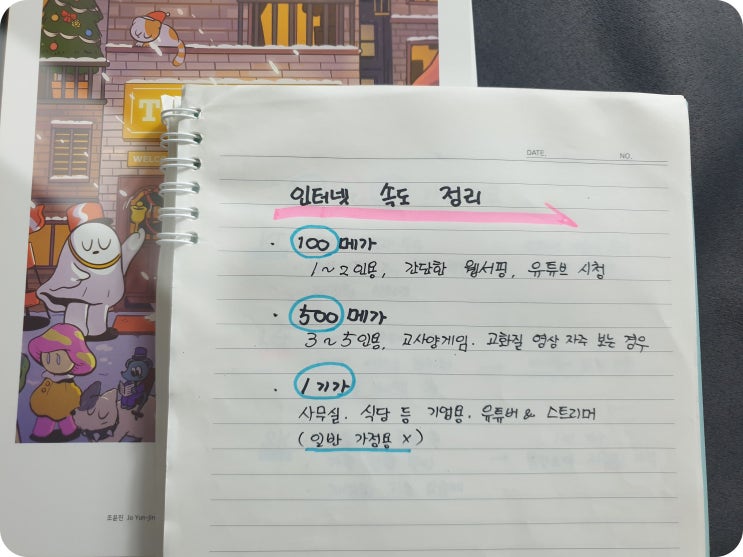 T
WELC
DATE.
NO.
인터넷 속도 정리
· 100 메가
1~2인용, 간단한 웹서핑, 유튜브 시청
· 500 메가
3~5인용, 고사양게임. 고화질 영상 자주 보는 경우
· 1기가
사무실. 식당 등 기업용. 유튜버 & 스트리머
(일반 가정용 X)
조윤진 Jo Yun-Jin